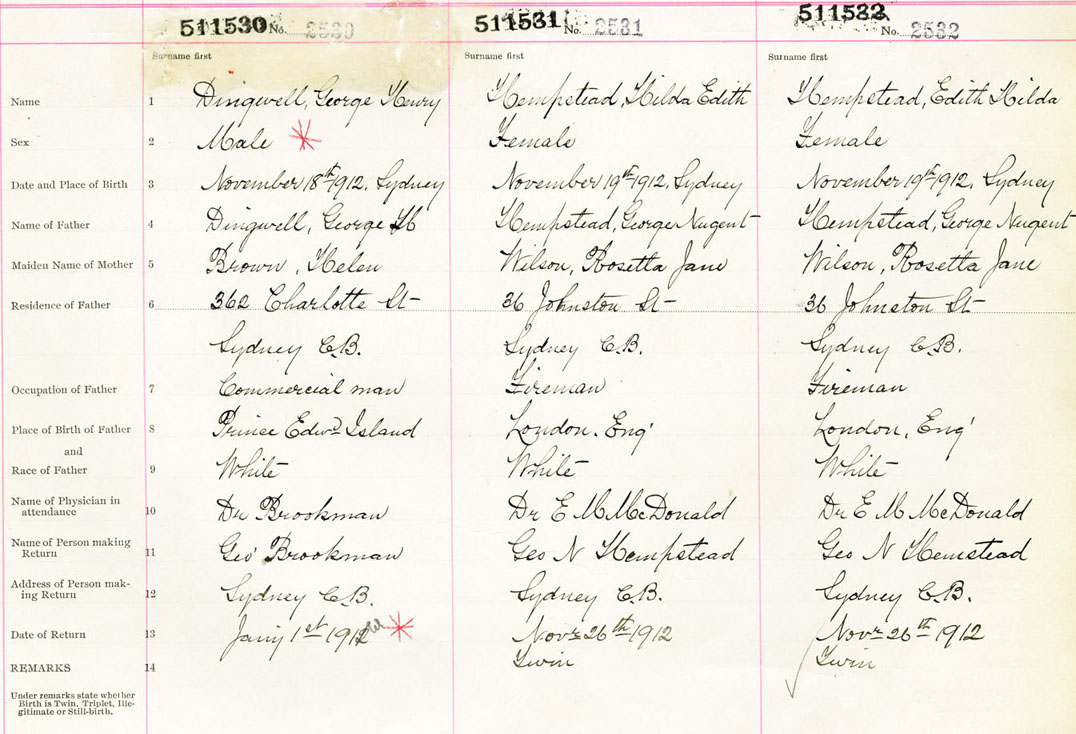 511530 No. 2530 511531 No. 2531 511532 No. 2532
Surname first Surname first Surname first
Name 1 Dingwell, George Henry Hempstead, Hilda Edith Hempstead, Edith Hilda
Sex 2 Male Female Female
Date and Place of Birth 3 November 18th 1912, Sydney November 19th 1912, Sydney November 19th 1912, Sydney
Name of Father 4 Dingwell, George Hempstead, George Nugent Hempstead, George Nugent
Maiden Name of Mother 5 Brown, Helen Wilson, Rosetta Jane Wilson, Rosetta Jane
Residence of Father 6 362 Charlotte St 36 Johnston St 36 Johnston St
Sydney C.B. Sydney C.B. Sydney C.B.
Occupation of Father 7 Commercial man Fireman Fireman
Place of Birth of Father 8 Prince Edwd Island London, Eng London, Eng
and
Race of Father 9 White White White
Name of Physician in
attendance 10 Dr Brookman Dr E M McDonald Dr E M McDonald
Name of Person making
Return 11 Geo Brookman Geo N Hempstead Geo N Hemstead
Address of Person mak-
ing Return 12 Sydney C.B. Sydney C.B. Sydney C.B.
Date of Return 13 Jany 1st 1912 Novr 26th 1912 Novr 26th 1912
REMARKS 14 Twin Twin
Under remarks state whether
Birth is Twin, Triplet, Ille-
gitimate or Still-birth.